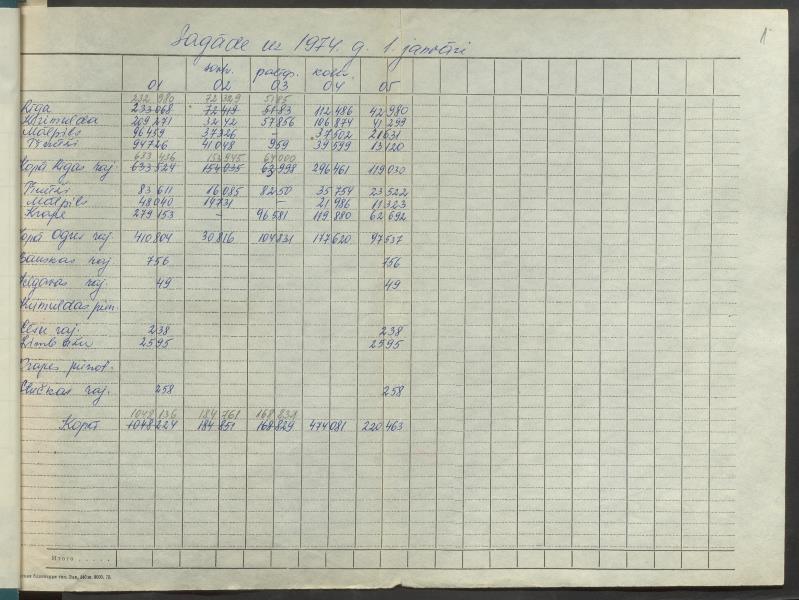 Sagāde uz 1974. g. 1. janvāri
1
kontr. pašizg. kolv.
01 02 03 04 05
232 980 72 329 5185
Rīga 233 068 72 419 5183 112 486 42 980
Krimulda 209 271 3242 57 856 106 874 41 299
Mālpils 96 459 37 326 – 37 502 21 631
Tīnūži 94 726 41 048 959 39 599 13 120
633 436 153 945 64 000
Kopā Rīgas raj. 633 524 154 035 63 998 296 461 119 030
Tīnūži 83 611 16 085 8250 35 754 23 522
Mālpils 48 040 14 731 – 21 986 11 323
Krape 279 153 – 96 581 119 880 62 692
Kopā Ogres raj. 410 804 30 816 104 831 177 620 97 537
Bauskas raj. 756 756
Jelgavas raj. 49 49
Krimuldas
Cēsu raj. 238 238
Limb. 2595 2595
Krapes
raj. 258 258
1048 136 184 761 168 831
Kopā 1048 224 184 851 168 829 474 081 220 463
Итого . . . . .